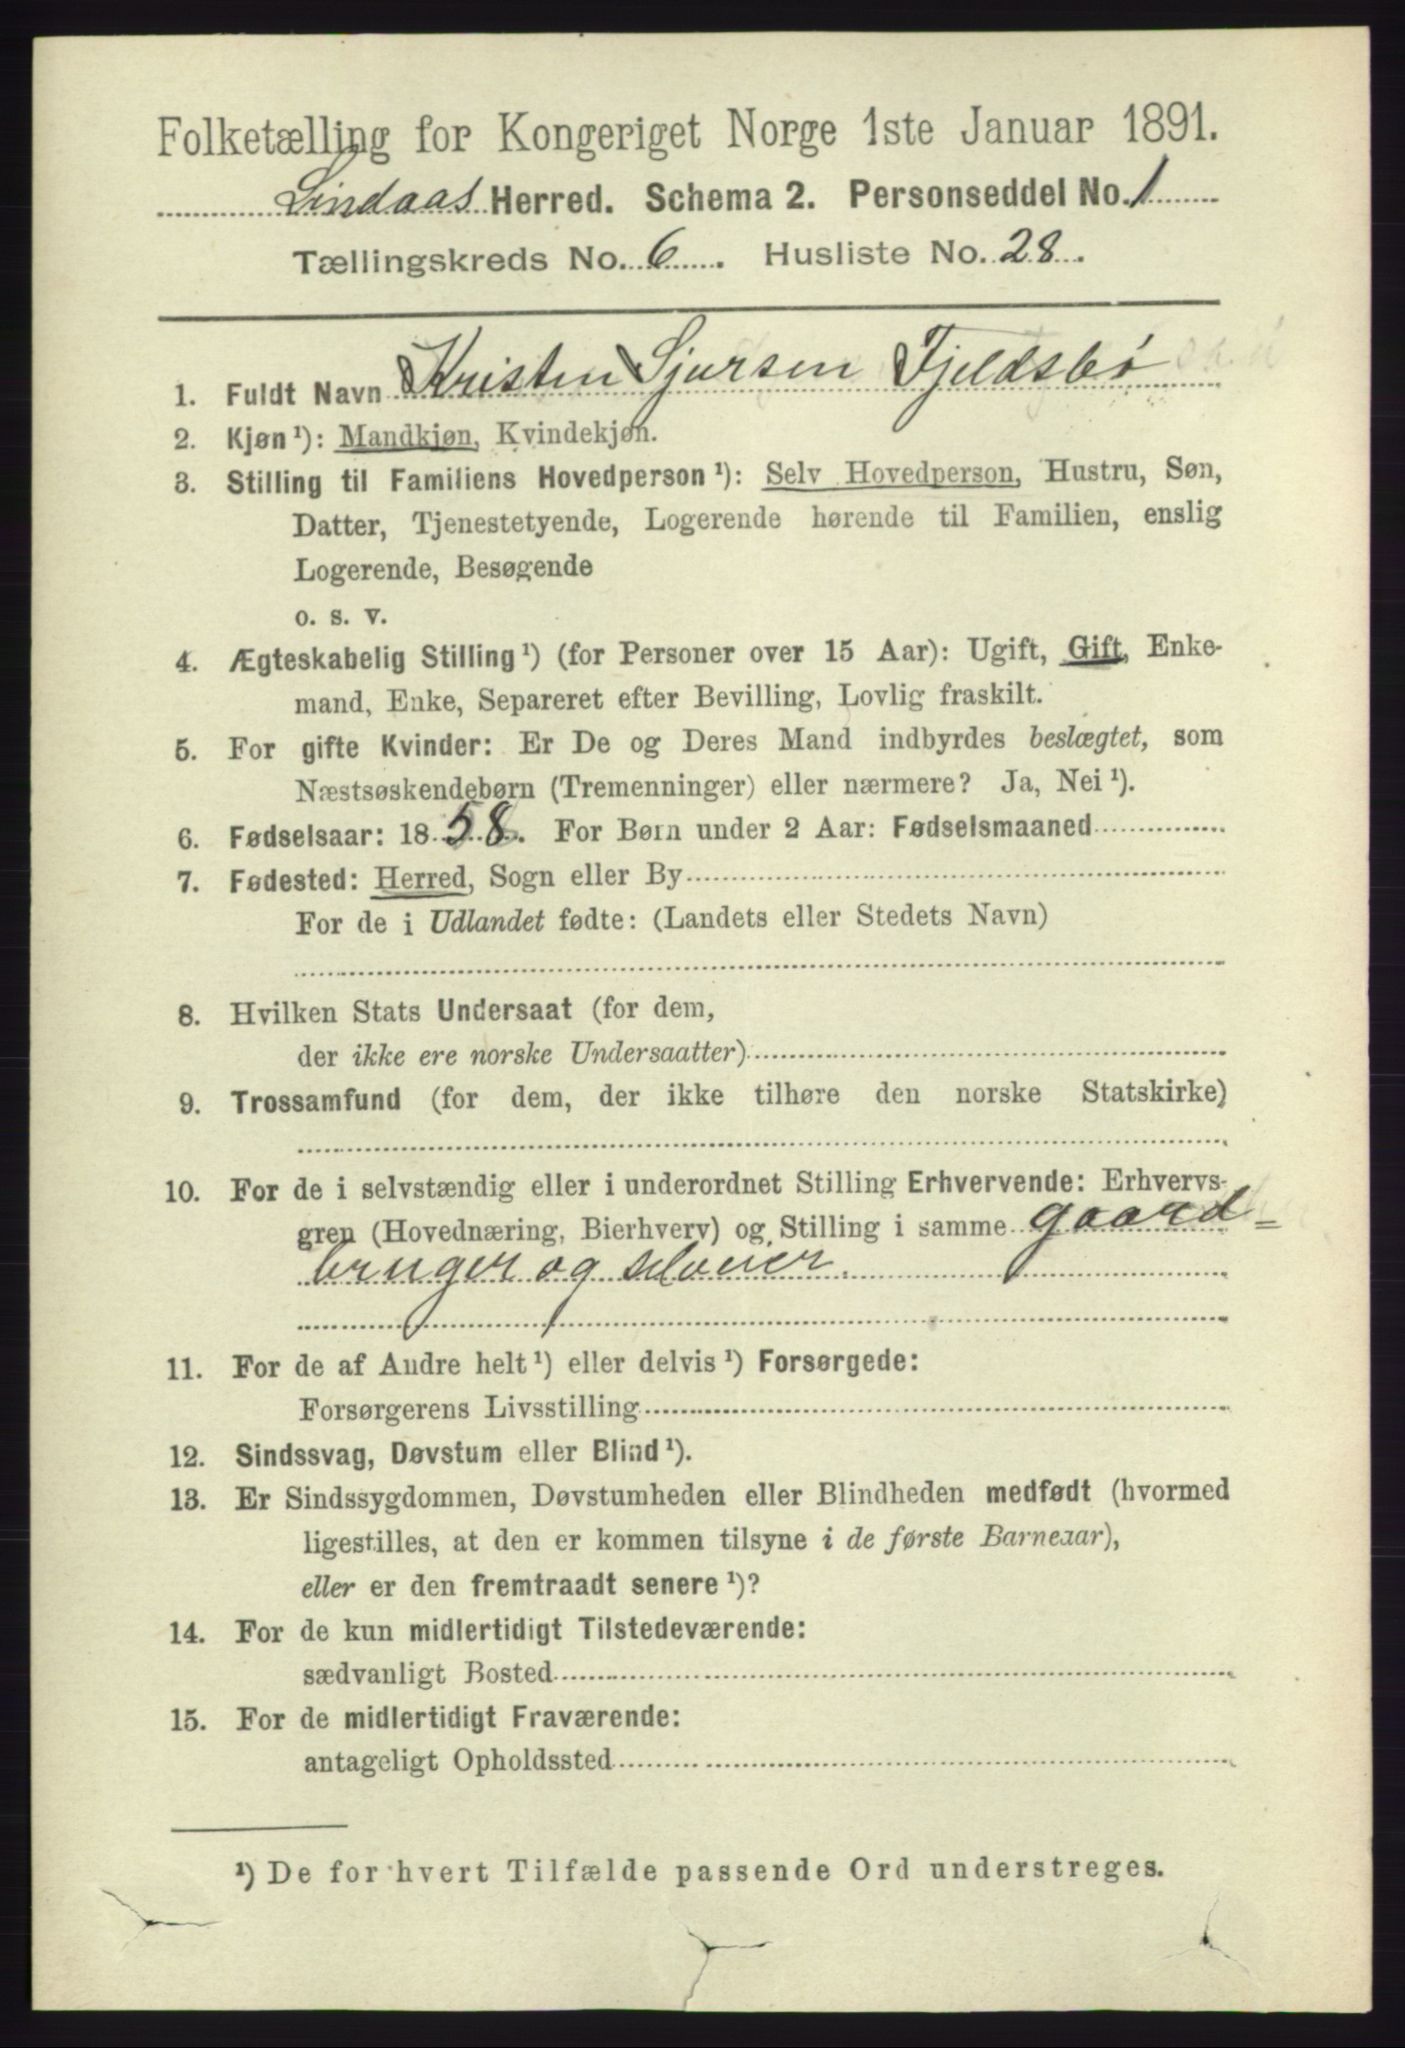 Folketælling for Kongeriget Norge 1ste Januar 1891.
Lindaas Herred. Schema 2. Personseddel No. 1
Tællingskreds No. 6. Husliste No. 28.
1. Fuldt Navn Kristen Sjursen Fjeldsbø
2. Kjøn ¹): Mandkjøn, Kvindekjøn.
3. Stilling til Familiens Hovedperson ¹): Selv Hovedperson, Hustru, Søn,
Datter, Tjenestetyende, Logerende hørende til Familien, enslig
Logerende, Besøgende
o. s. v.
4. Ægteskabelig Stilling ¹) (for Personer over 15 Aar): Ugift, Gift, Enke-
mand, Enke, Separeret efter Bevilling, Lovlig fraskilt.
5. For gifte Kvinder: Er De og Deres Mand indbyrdes beslægtet, som
Næstsøskendebørn (Tremenninger) eller nærmere? Ja, Nei ¹).
6. Fødselsaar: 1858. For Børn under 2 Aar: Fødselsmaaned
7. Fødested: Herred, Sogn eller By
For de i Udlandet fødte: (Landets eller Stedets Navn)
8. Hvilken Stats Undersaat (for dem,
der ikke ere norske Undersaatter)
9. Trossamfund (for dem, der ikke tilhøre den norske Statskirke)
10. For de i selvstændig eller i underordnet Stilling Erhvervende: Erhvervs-
gren (Hovednæring, Bierhverv) og Stilling i samme gaard=
bruger og selveier.
11. For de af Andre helt ¹) eller delvis ¹) Forsørgede:
Forsørgerens Livsstilling
12. Sindssvag, Døvstum eller Blind ¹).
13. Er Sindssygdommen, Døvstumheden eller Blindheden medfødt (hvormed
ligestilles, at den er kommen tilsyne i de første Barneaar),
eller er den fremtraadt senere ¹)?
14. For de kun midlertidigt Tilstedeværende:
sædvanligt Bosted
15. For de midlertidigt Fraværende:
antageligt Opholdssted
¹) De for hvert Tilfælde passende Ord understreges.